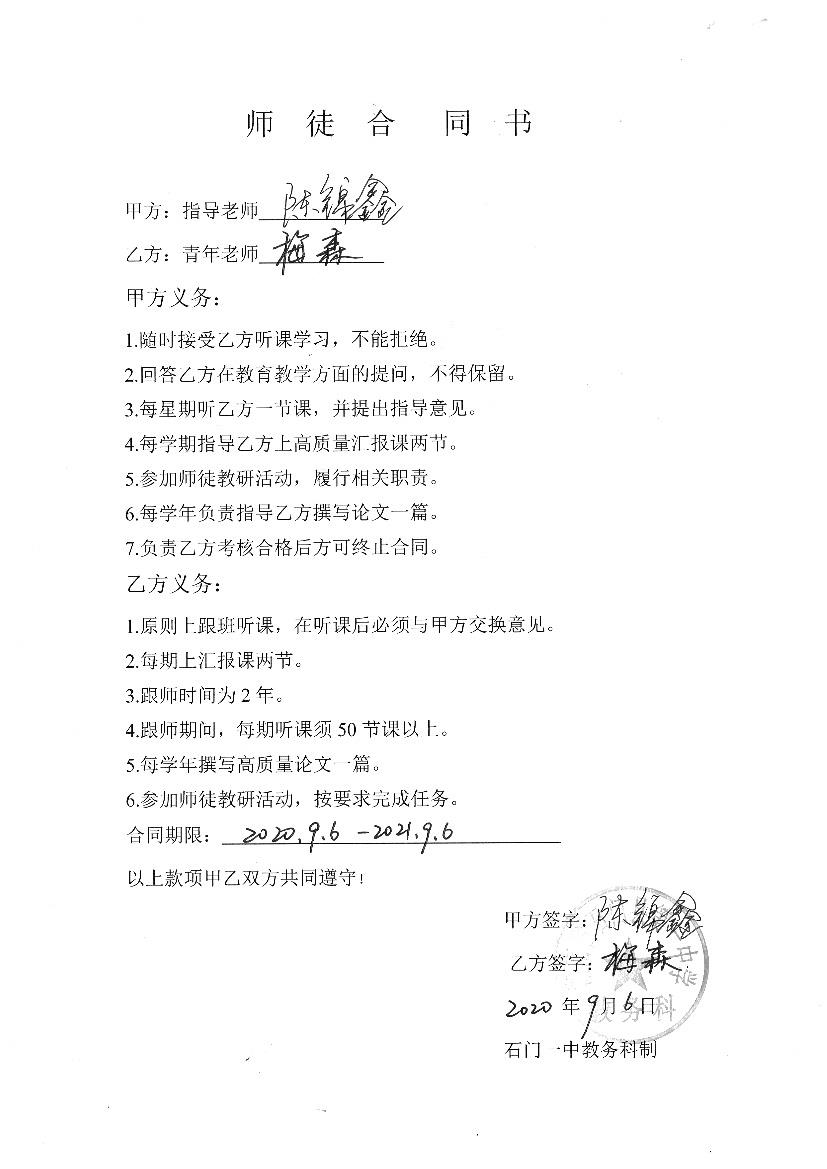 师徒合同书
甲方：指导老师陈锦鑫
乙方：青年老师梅森
甲方义务：
1.随时接受乙方听课学习，不能拒绝。
2.回答乙方在教育教学方面的提问，不得保留。
3.每星期听乙方一节课，并提出指导意见。
4.每学期指导乙方上高质量汇报课两节。
5.参加师徒教研活动，履行相关职责。
6.每学年负责指导乙方撰写论文一篇。
7.负责乙方考核合格后方可终止合同。
乙方义务：
1.原则上跟班听课，在听课后必须与甲方交换意见。
2.每期上汇报课两节。
3.跟师时间为2年。
4.跟师期间，每期听课须50节课以上。
5.每学年撰写高质量论文一篇。
6.参加师徒教研活动，按要求完成任务。
合同期限：2020.9.6-2021.9.6
以上款项甲乙双方共同遵守！
甲方签字：陈锦鑫
乙方签字：梅森
2020年9月6日
石门一中教务科制
教务科